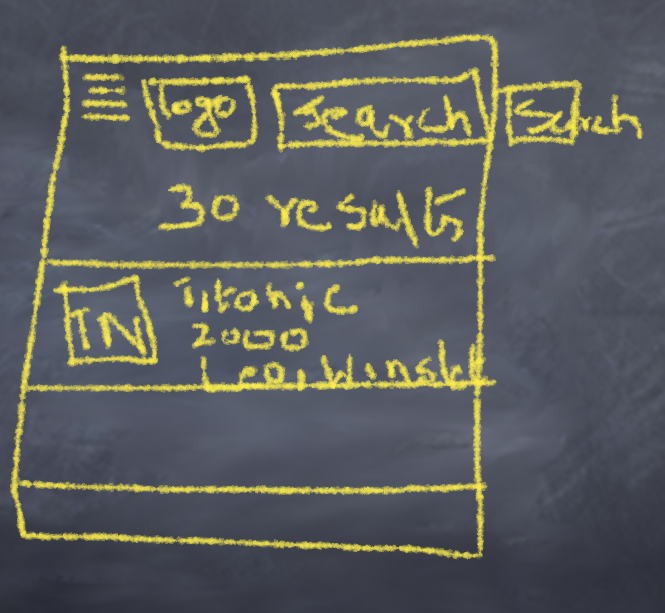 logo search Serch
30 results
TN Titanic
2000
Leo, Winslet